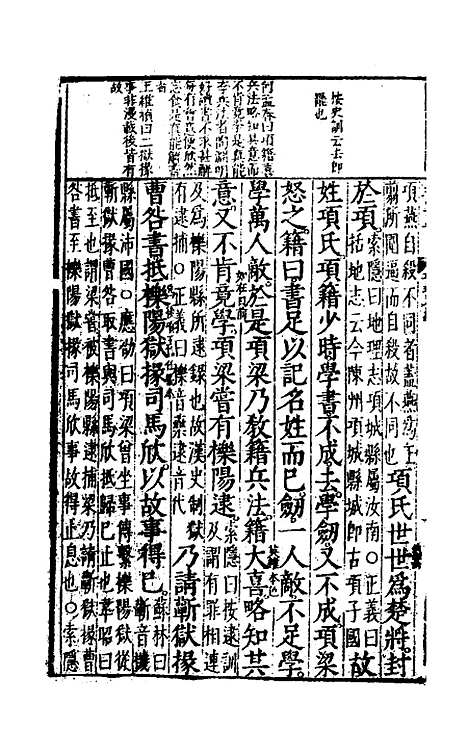 按史訓云去即
罷也
何孟春曰項籍喜
兵法略知其意又
不肯竟學是真能
李兵法者陶淵明
好讀書不求甚解
每有會意便欣然
忘食是真能解書
者
王維楨曰二獄掾
事非漫載後皆有
故
項燕自殺不同者蓋燕
翦所圍逼而自殺故不同也項氏世世爲楚將封
於項索隱曰地理志項城縣屬汝南〇正義曰
括地志云今陳州項城縣城即古項子國故
姓項氏項籍少時學書不成去學劒又不成項梁
怒之籍曰書足以記名姓而已劒一人敵不足學
學萬人敵於是項梁乃教籍兵法籍大喜略知其
意又不肯竟學項梁甞有櫟陽逮索隱曰按逮訓
及謂有罪相連
及爲櫟陽縣所逮錄也故漢史制獄
有逮捕〇正義曰櫟音藥逮音代乃請蘄獄掾
曹咎書抵櫟陽獄掾司馬欣以故事得已蘇林曰
蘄音機
縣屬沛國〇應劭曰項梁曾坐事傳繫櫟陽獄從
蘄獄掾曹咎取書與司馬欣抵歸已止也韋昭曰
抵至也謂梁甞被櫟陽縣逮捕梁乃請蘄獄掾曹
咎書至櫟陽獄掾司馬欣事故得止息也〇索隱